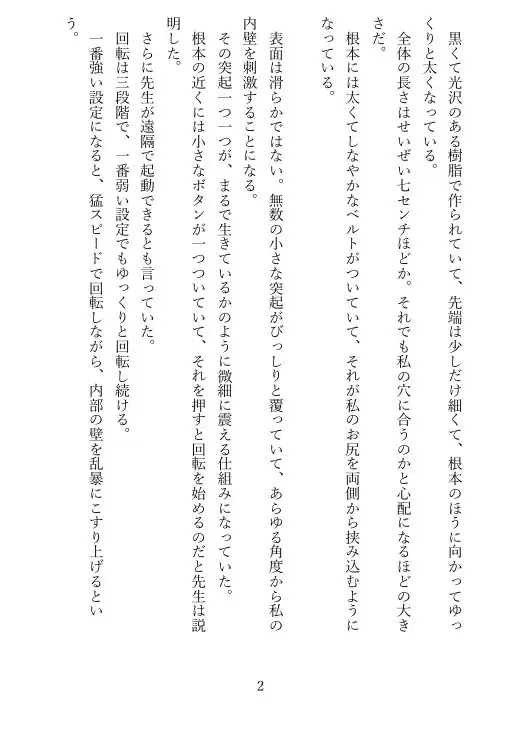 黒くて光沢のある樹脂で作られていて、先端は少しだけ細くて、根本のほうに向かってゆっ
くりと太くなっている。
全体の長さはせいぜい七センチほどか。それでも私の穴に合うのかと心配になるほどの大き
さだ。
根本には太くてしなやかなベルトがついていて、それが私のお尻を両側から挟み込むように
なっている。
表面は滑らかではない。無数の小さな突起がびっしりと覆っていて、あらゆる角度から私の
内壁を刺激することになる。
その突起一つ一つが、まるで生きているかのように微細に震える仕組みになっていた。
根本の近くには小さなボタンが一つついていて、それを押すと回転を始めるのだと先生は説
明した。
さらに先生が遠隔で起動できるとも言っていた。
回転は三段階で、一番弱い設定でもゆっくりと回転し続ける。
一番強い設定になると、猛スピードで回転しながら、内部の壁を乱暴にこすり上げるとい
う。
2